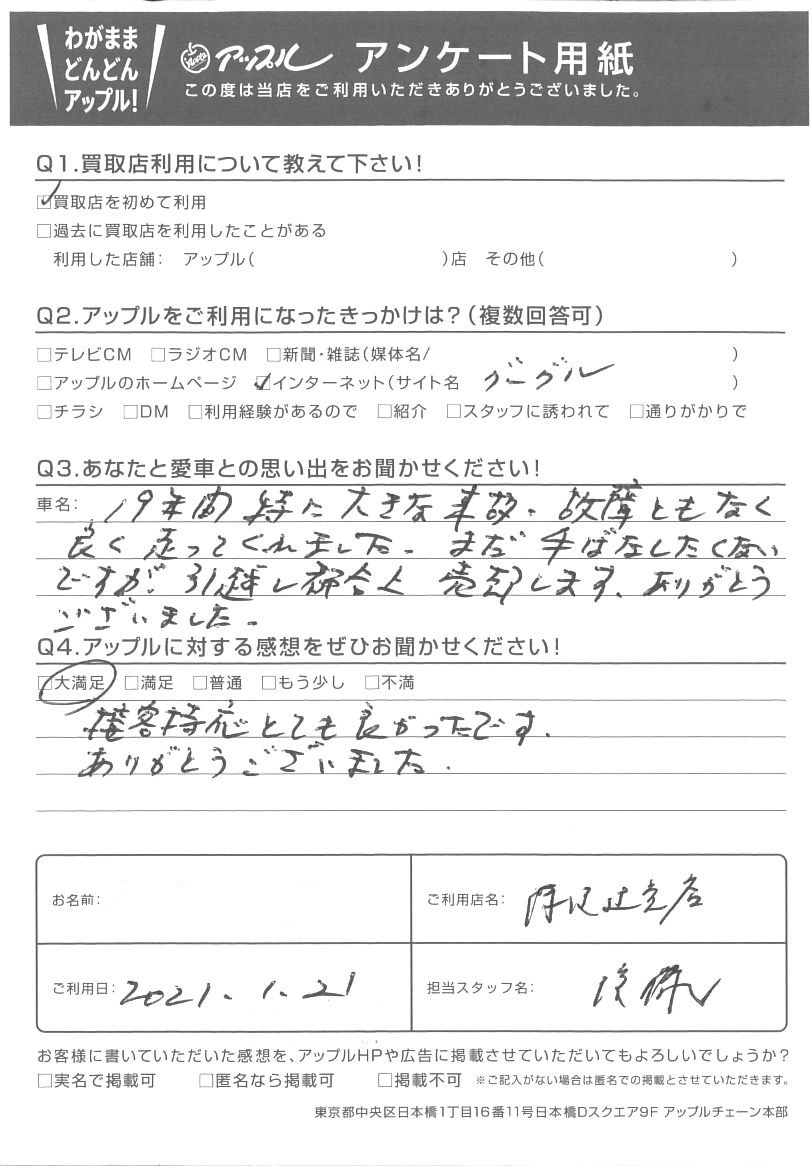 わがまま
どんどん
アップル!
Apple アップル アンケート用紙
この度は当店をご利用いただきありがとうございました。
Q1.買取店利用について教えて下さい!
☑買取店を初めて利用
□過去に買取店を利用したことがある
利用した店舗: アップル( )店 その他( )
Q2.アップルをご利用になったきっかけは?(複数回答可)
□テレビCM □ラジオCM □新聞・雑誌(媒体名/ )
□アップルのホームページ ☑インターネット(サイト名 グーグル )
□チラシ □DM □利用経験があるので □紹介 □スタッフに誘われて □通りがかりで
Q3.あなたと愛車との思い出をお聞かせください!
車名: 19年間 特に大きな事故・故障ともなく
良く走ってくれました。まだ手ばなしたくない
ですが引越し都合上 売却します。ありがとう
ございました。
Q4.アップルに対する感想をぜひお聞かせください!
□大満足 □満足 □普通 □もう少し □不満
接客対応とても良かったです。
ありがとうございました。
お名前:
ご利用店名:
ご利用日: 2021.1.21
担当スタッフ名:
お客様に書いていただいた感想を、アップルHPや広告に掲載させていただいてもよろしいでしょうか?
□実名で掲載可 □匿名なら掲載可 □掲載不可 ※ご記入がない場合は匿名での掲載とさせていただきます。
東京都中央区日本橋1丁目16番11号日本橋Dスクエア9F アップルチェーン本部